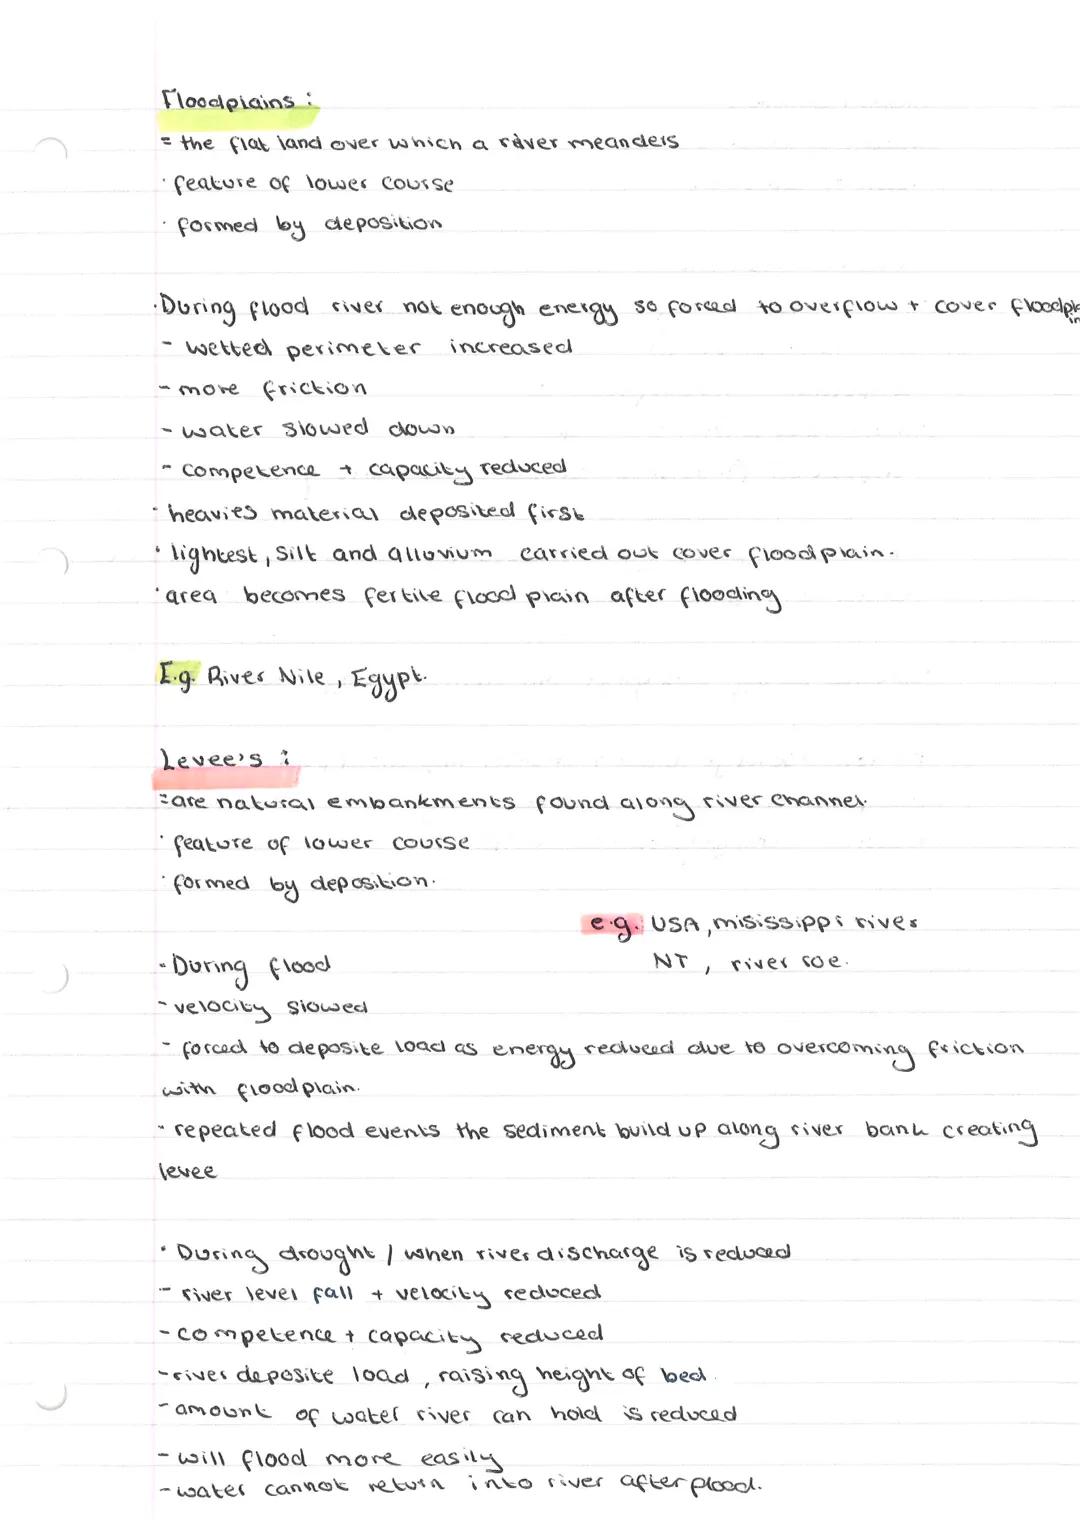 Floodplains :
= the flat land over which a river meanders
· feature of lower course
· formed by deposition
· During flood river not enough energy so forced to overflow + cover floodplain
- wetted perimeter increased
- more friction
- water slowed down
- competence + capacity reduced
· heavies material deposited first
· lightest, silt and alluvium carried out cover floodplain.
· area becomes fertile flood plain after flooding
E.g. River Nile, Egypt.
Levee's :
= are natural embankments found along river channel.
· feature of lower course
· formed by deposition.
e.g. USA, misissippi river
NI, river roe.
- During flood
- velocity slowed
- forced to deposite load as energy reduced due to overcoming friction
with floodplain.
- repeated flood events the sediment build up along river bank creating
levee
· During drought / when river discharge is reduced
- river level fall + velocity reduced
- competence + capacity reduced
- river deposite load, raising height of bed.
- amount of water river can hold is reduced
- will flood more easily
- water cannot return into river after flood.